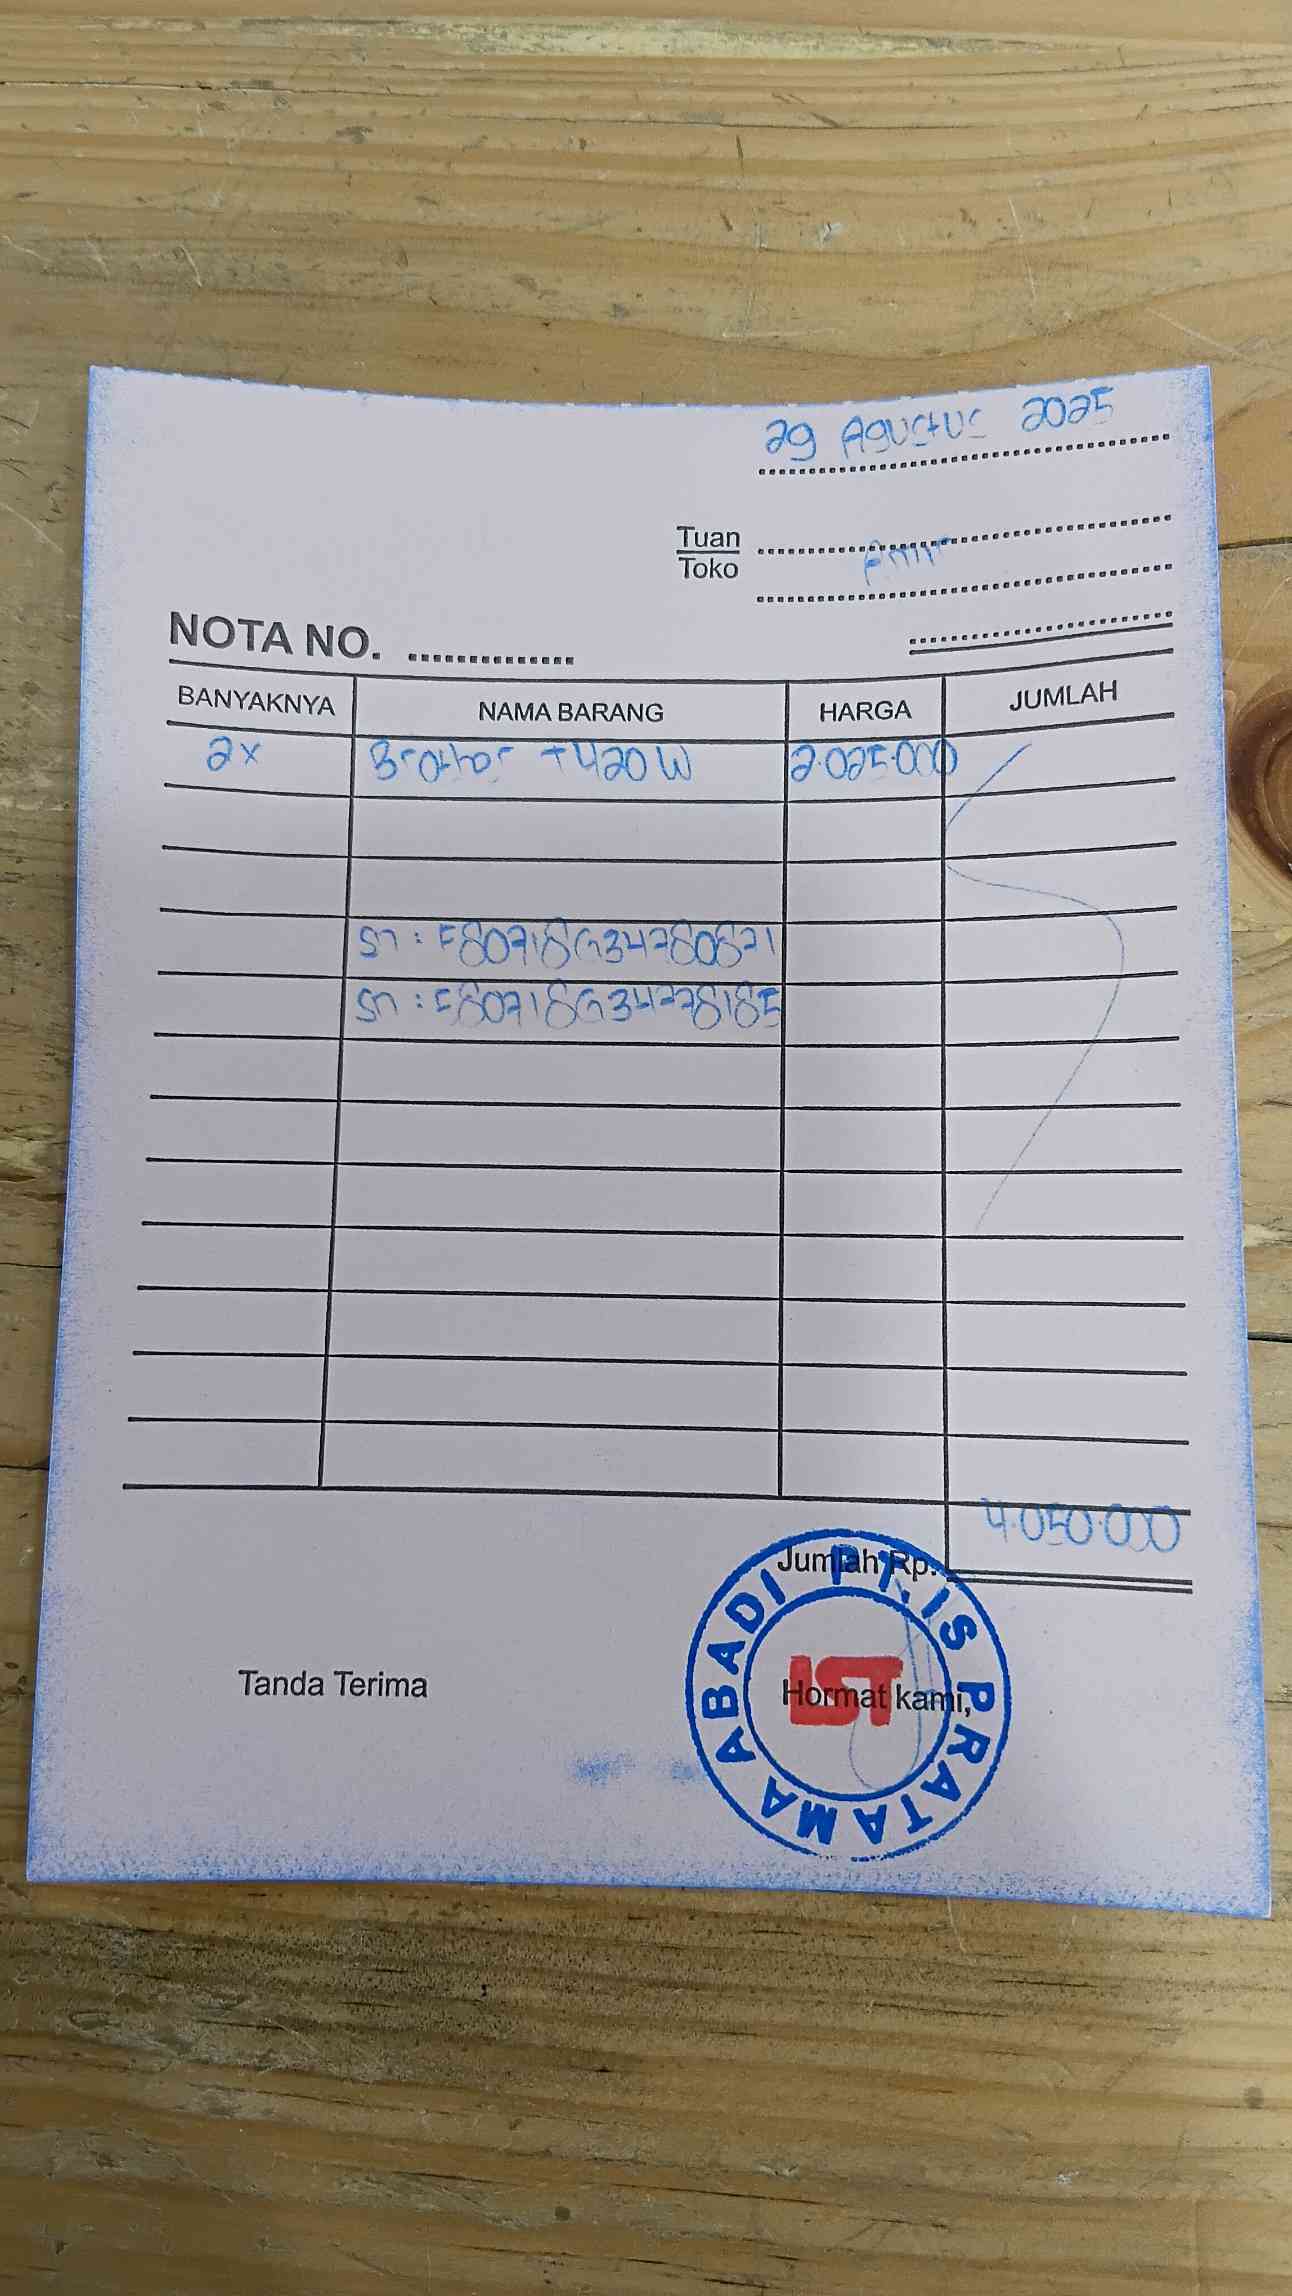 29 Agustus 2025
Tuan
Toko
Amir
NOTA NO. ..............
BANYAKNYA NAMA BARANG HARGA JUMLAH
2x Brother T420W 2.025.000
Sn : E80718G34780871
Sn : E80718G34778185
4.050.000
Jumlah Rp.
Tanda Terima
Hormat kami,
PT. IS PRATAMA ABADI
IST